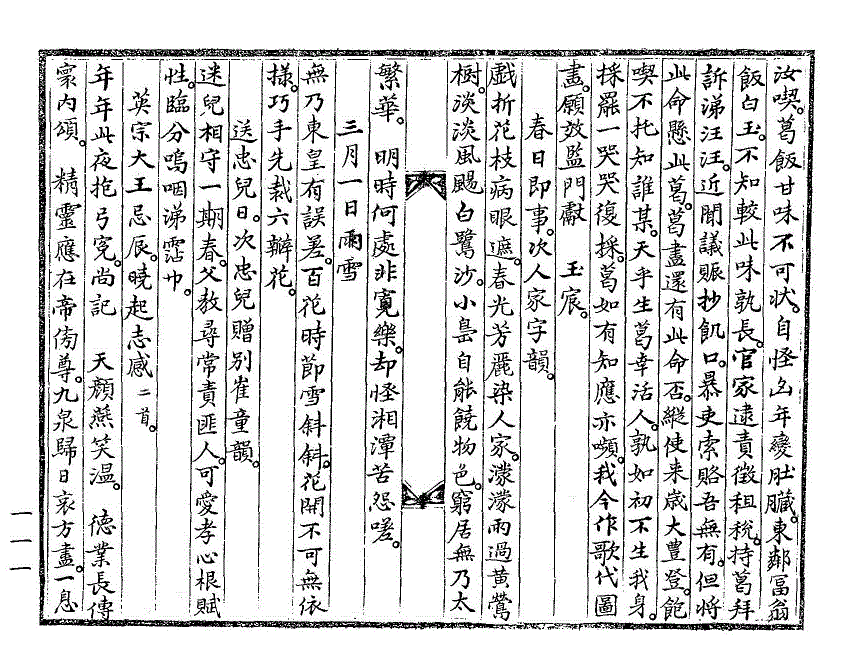 汝喫。葛飯甘味不可狀。自怪凶年變肚臟。東鄰富翁
飯白玉。不知較此味孰長。官家逮責徵租稅。持葛拜
訴涕汪汪。近聞議賑抄飢口。暴吏索賂吾無有。但將
此命懸此葛。葛盡還有此命否。縱使来歲大豊登。飽
喫不托知誰某。天乎生葛幸活人。孰如初不生我身。
採罷一哭哭復採。葛如有知應亦嚬。我今作歌代圖
畫。願效監門獻 玉宸。
春日即事。次人家字韻。
戲折花枝病眼遮。春光芳麗染人家。濛濛雨過黃鶯
樹。淡淡風颺白鷺沙。小島自能饒物色。窮居無乃太
繁華。 明時何處非寬樂。却怪湘潭苦怨嗟。
三月一日雨雪
無乃東皇有誤差。百花時節雪斜斜。花開不可無依
樣。巧手先裁六瓣花。
送忠兒日。次忠兒贈別崔童韻。
迷兒相守一期春。父敎尋常責匪人。可愛孝心根賦
性。臨分嗚咽涕霑巾。
英宗大王忌辰。曉起志感 二首。
年年此夜抱弓寃。尚記 天顏燕笑溫。 德業長傳
寰內頌。 精靈應在帝傍尊。九泉歸日哀方盡。一息
一一一